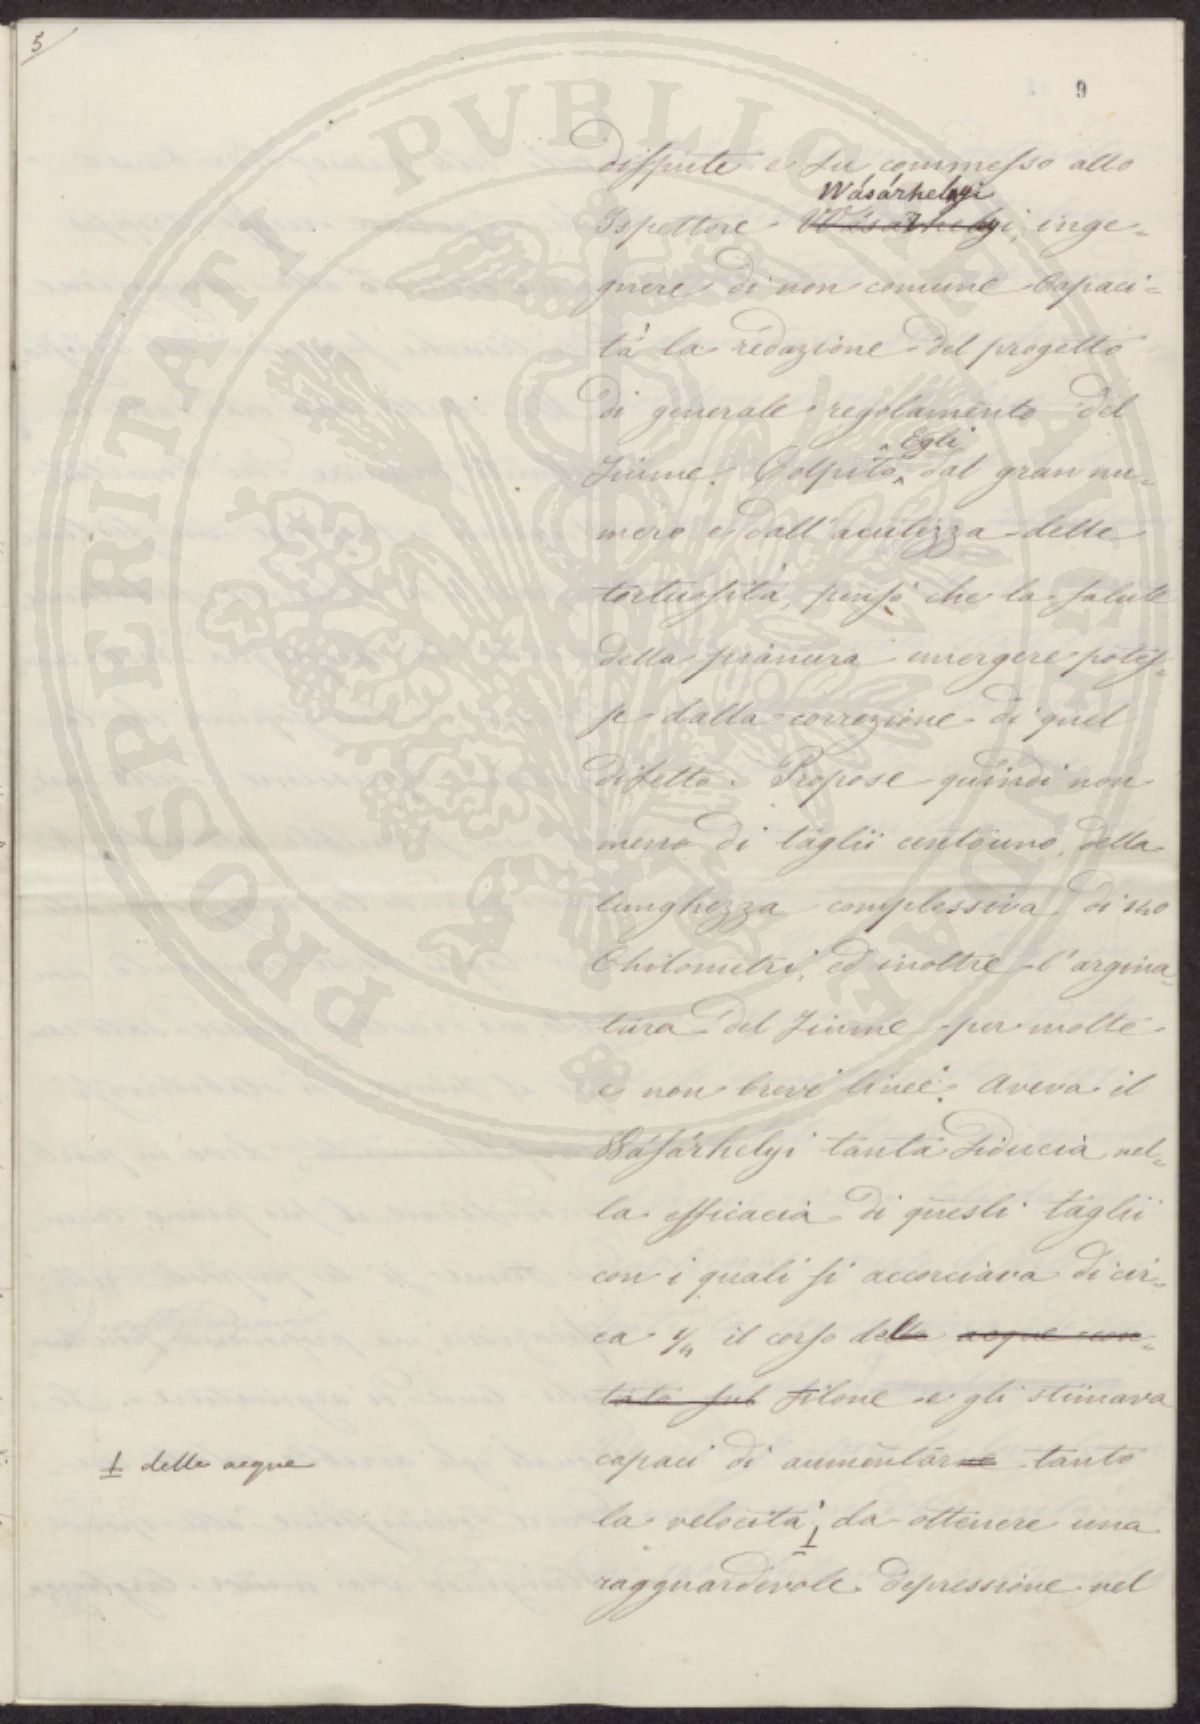 5
9
dispute e fu commesso allo
Wásárhelyi
Ispettore Wásárhelyi, inge-
gnere di non comune Capaci-
tà la redazione del progetto
di generale regolamento del
Egli
Fiume. Colpito dal gran nu-
mero e dall'acutezza delle
tortuosità, pensò che la salute
della pianura emergere potes-
se dalla correzione di quel
difetto. Propose quindi non
meno di taglii centouno, della
lunghezza complessiva di 140
Chilometri, ed inoltre l'argina-
tura del Fiume per molte
e non brevi linee. Aveva il
Wásárhelyi tanta fiducia nel-
la efficacia di questi taglii
con i quali si accorciava di cir-
ca 1/4 il corso delle acque con-
tato sul filone e gli stimava
capaci di aumentarne tanto
la velocità, da ottenere una
ragguardevole depressione nel
1 delle acque
PROSPERITATI PUBLICAE AUGENDAE